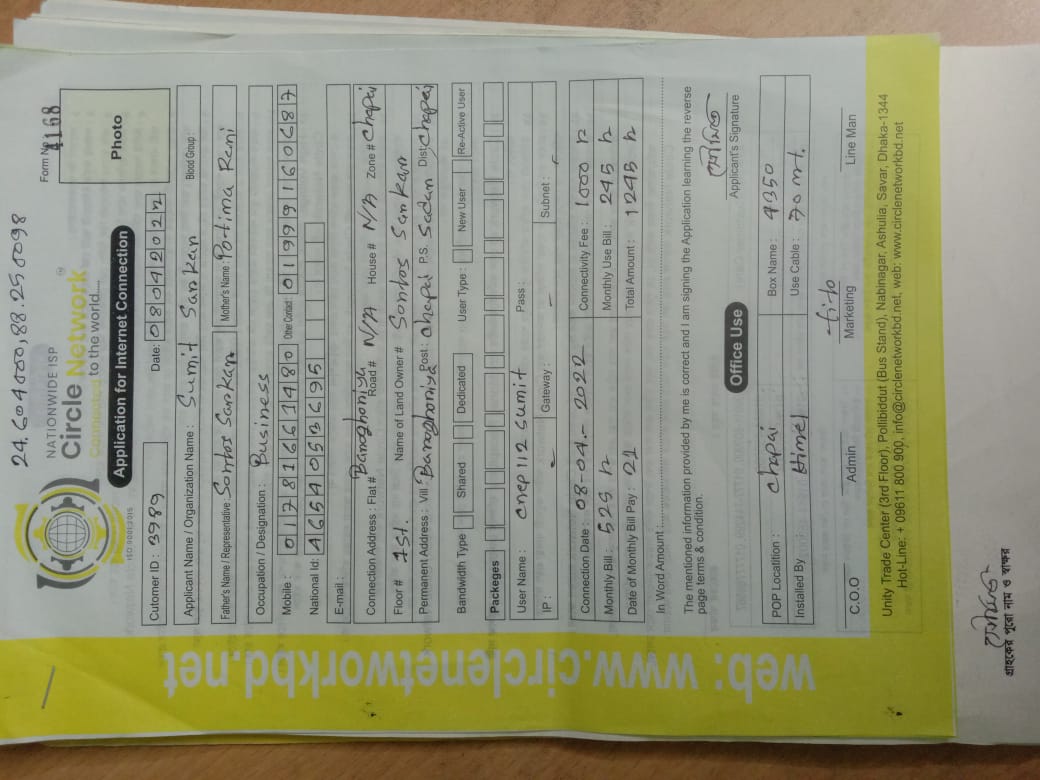 24.604000,88.250098
NATIONWIDE ISP
Circle Network
Connected to the world....
ISO 9001:2015
Form No 4168
Application for Internet Connection
Photo
Cutomer ID : 3989 Date: 08042022
Applicant Name / Organization Name : Sumit Sarkar Blood Group :
Father's Name / Representative : Sontos Sarkar Mother's Name : Portima Rani
Occupation / Designation : Business
Mobile : 01781661480 Other Contact : 01999160687
National Id: 4654053695
E-mail :
Connection Address : Flat # Baroghoriya Road # N/A House # N/A Zone # Chapai
Floor # 1st. Name of Land Owner # Sontos Sarkar
Permanent Address : Vill : Baroghoriya Post : Chapai P.S. Sadar Dist: Chapai
Bandwidth Type Shared Dedicated User Type : New User Re-Active User
Packeges
User Name : cnep112 sumit Pass :
IP : - Gateway : - Subnet : -
Connection Date : 08-04.-2022 Connectivity Fee : 1000 
Monthly Bill : 525 Monthly Use Bill : 245
Date of Monthly Bill Pay : 21 Total Amount : 1245
In Word Amount :
The mentioned information provided by me is correct and I am signing the Application learning the reverse
page terms & condition.
Applicant's Signature
Office Use
POP Locatition : Chapai Box Name : 4350
Installed By : Himel Use Cable : 30 mt.
C.O.O Admin Marketing Line Man
Unity Trade Center (3rd Floor), Pollibiddut (Bus Stand), Nabinagar, Ashulia, Savar, Dhaka-1344
Hot-Line: + 09611 800 900, info@circlenetworkbd.net, web: www.circlenetworkbd.net
web: www.circlenetworkbd.net
গ্রাহকের পুরো নাম ও স্বাক্ষর